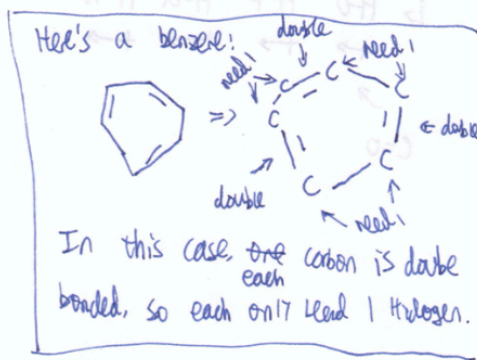 Here's a benzene:
double
need 1
need 1
C C C
C
C
C
← double
double
need 1
In this case, one each carbon is double
bonded, so each only need 1 Hydrogen.